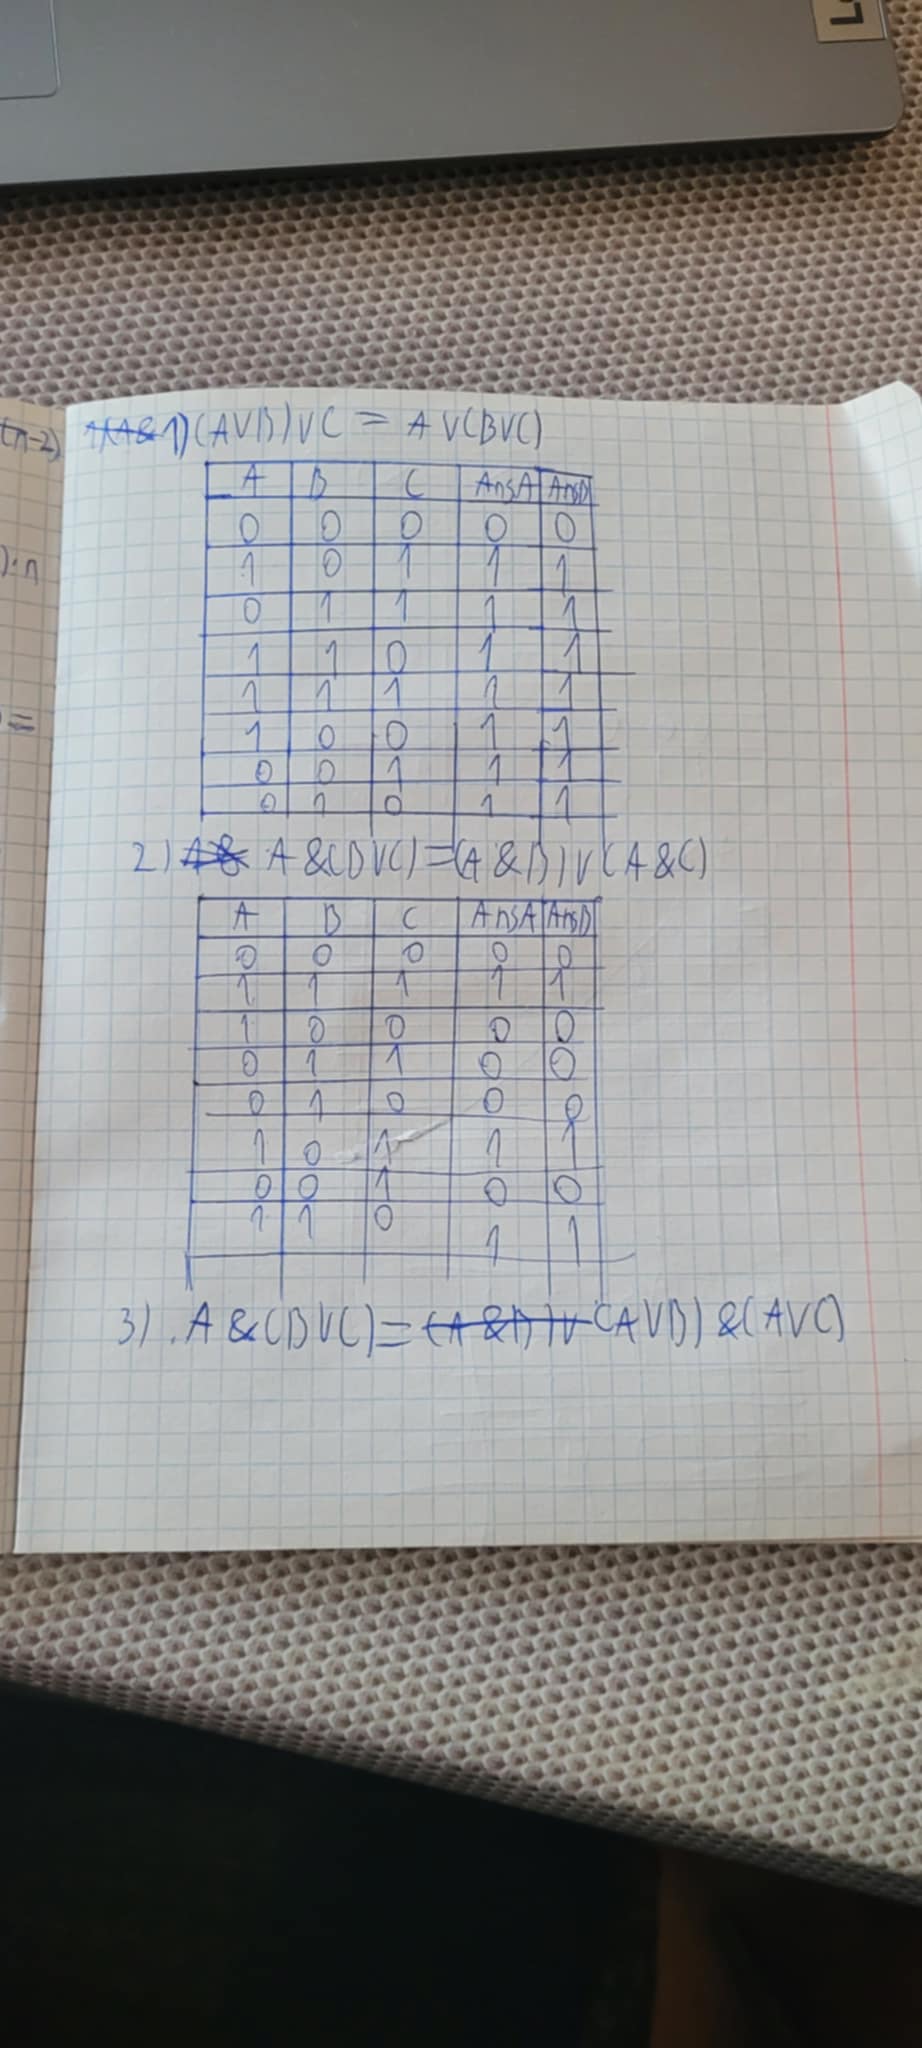 (n-2)
1) (AVB)VC = AV(BVC)
A B C AnsA AnsB
0 0 0 0 0
1 0 1 1 1
0 1 1 1 1
1 1 0 1 1
1 1 1 1 1
1 0 0 1 1
0 0 1 1 1
0 1 0 1 1
2) A&(BVC)=(A&B)V(A&C)
A B C AnsA AnsB
0 0 0 0 0
1 1 1 1 1
1 0 0 0 0
0 1 1 0 0
0 1 0 0 0
1 0 1 1 1
0 0 1 0 0
1 1 0 1 1
3). A&(BVC)=(A&B)V(AVB)&(AVC)